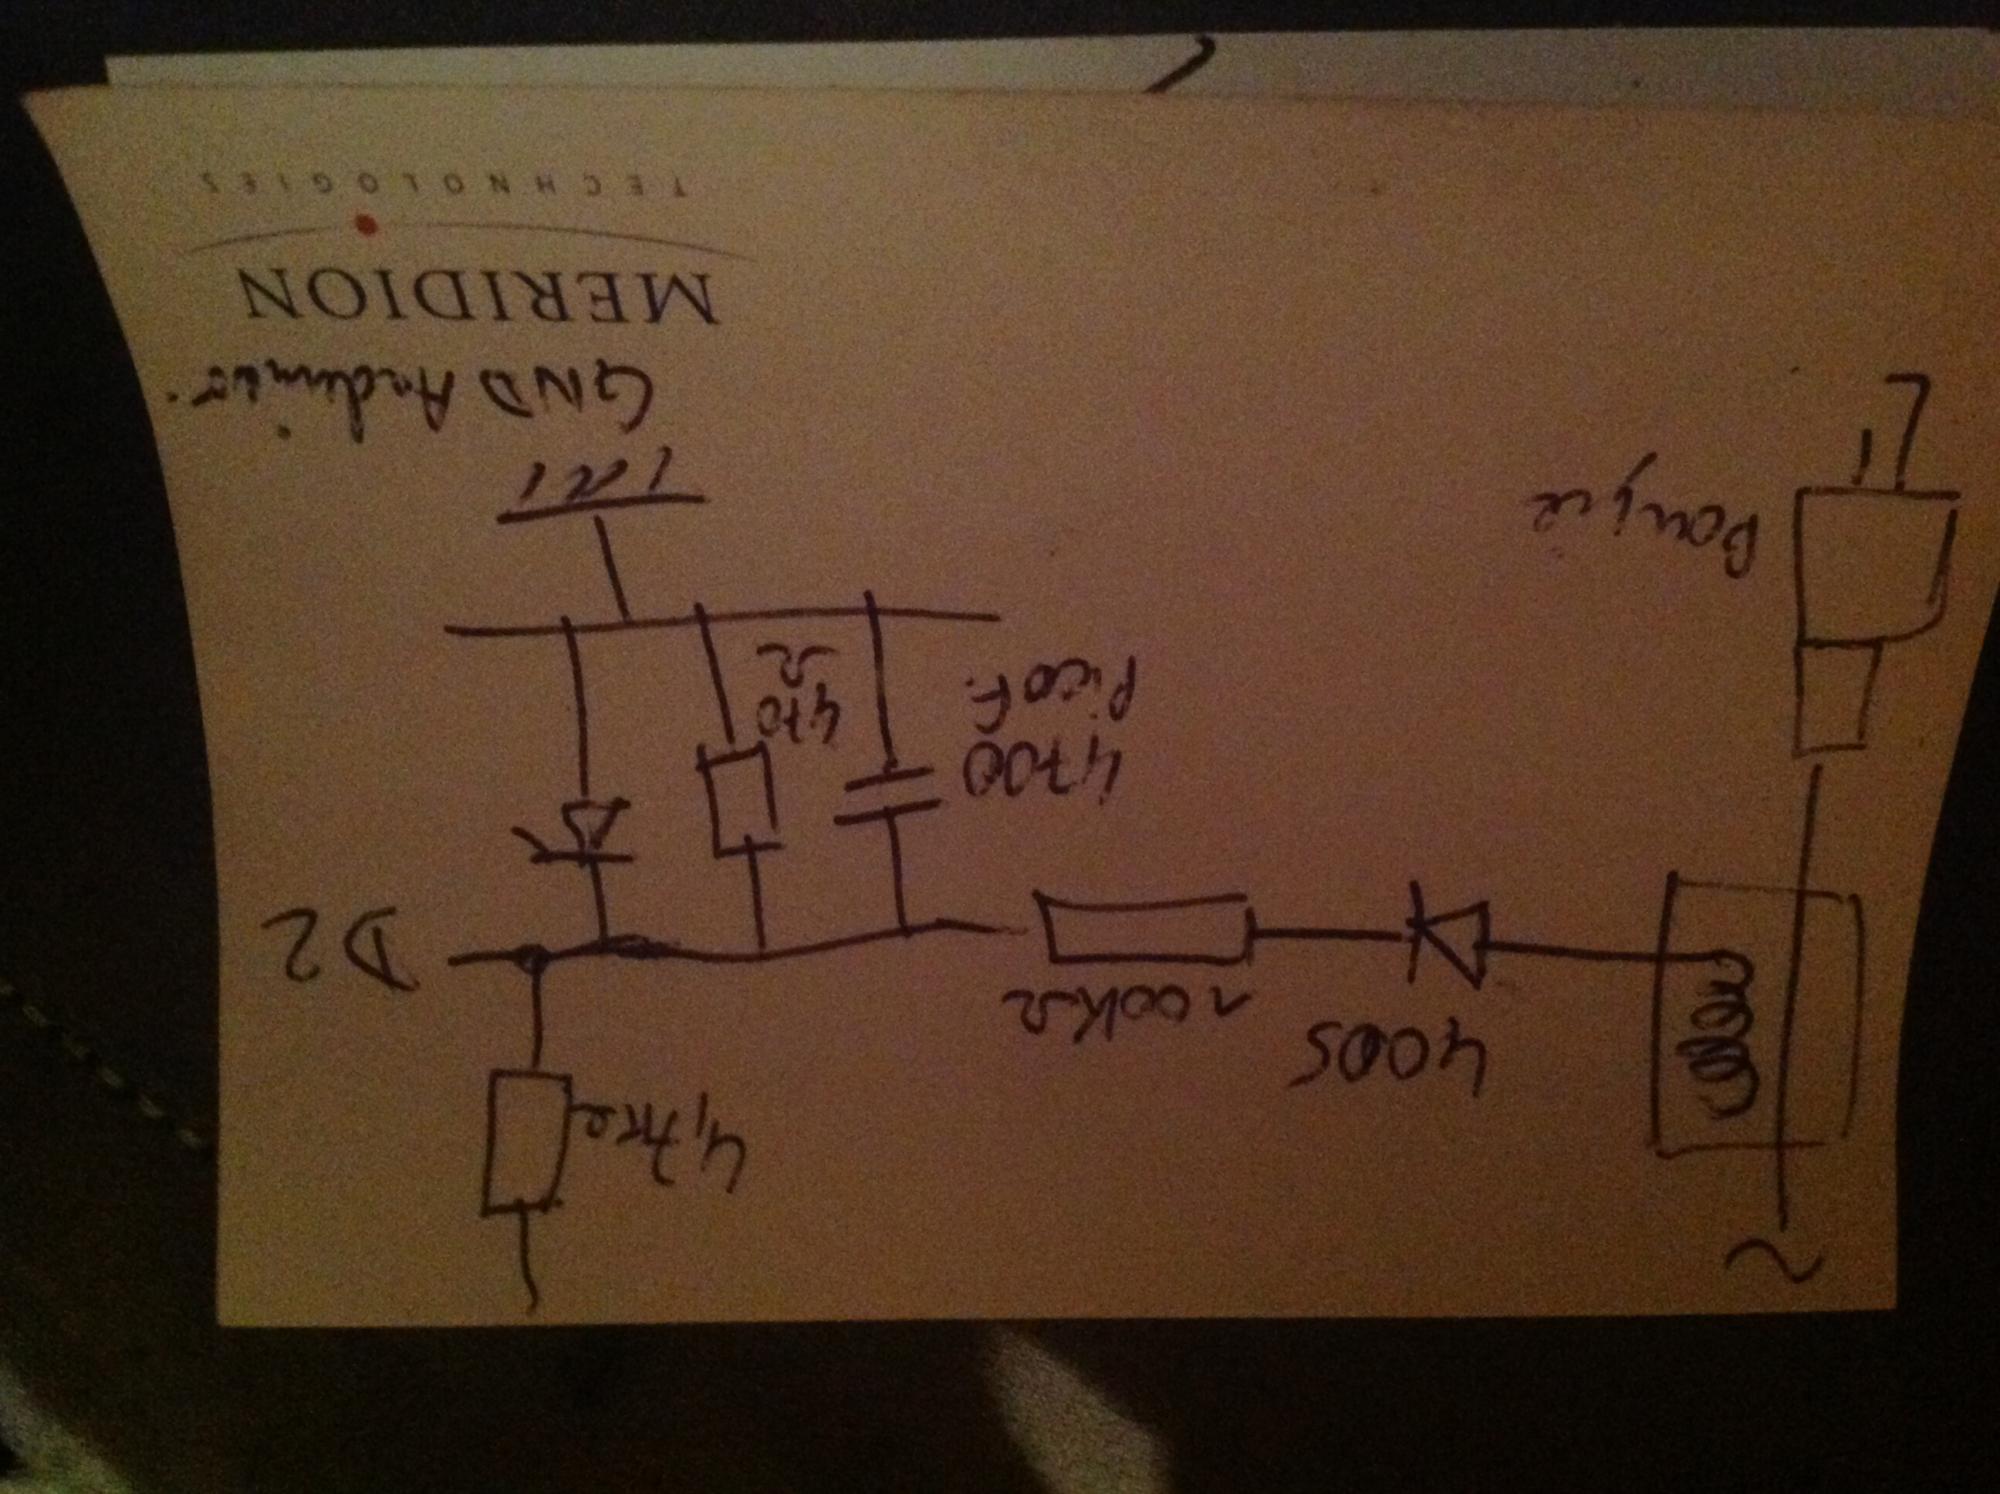 ~
4,7kΩ
4005
100KΩ
D2
4700
PicoF.
470
Ω
Bougie
GND Arduino.
MERIDION
TECHNOLOGIES